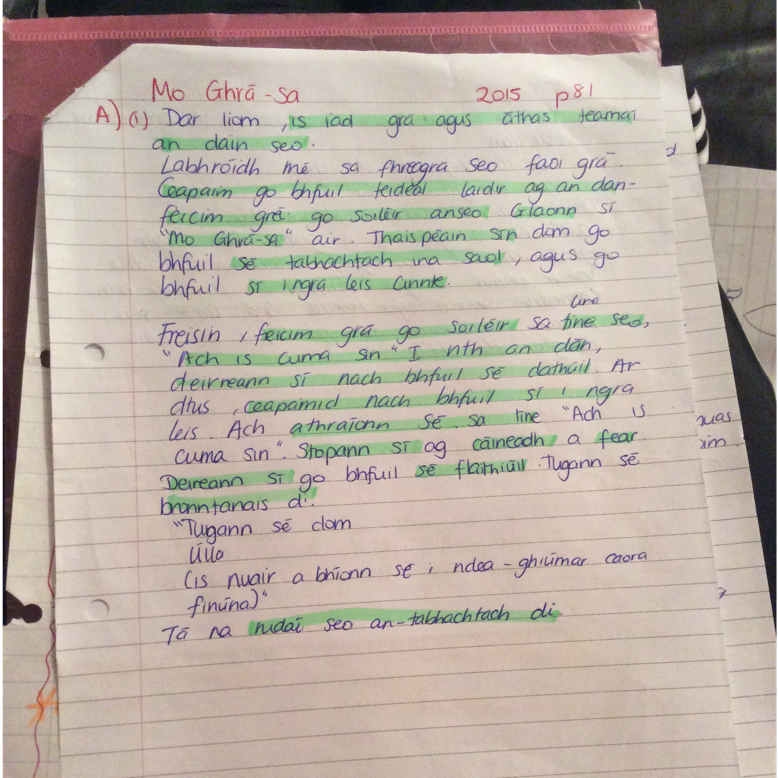 Mo Ghrá-sa 2015 p81
A) (i) Dar liom, is iad grá agus áthas téamaí
an dáin seo.
Labhróidh mé sa fhreagra seo faoi grá.
Ceapaim go bhfuil teideál laidir ag an dán-
feicim grá go soiléir anseo Glaonn sí
"Mo Ghrá-sa" air. Thaispeáin sin dom go
bhfuil sé tabhachtach ina saol, agus go
bhfuil sí i ngrá leis cinnte.
líne
Freisin, feicim grá go soiléir sa tine seo,
"Ach is cuma sin" I nth an dán,
deirreann sí nach bhfuil sé dathúil. Ar
dtus, ceapamid nach bhfuil sí i ngrá
leis. Ach athraíonn sé sa líne "Ach is
cuma sin". Stopann sí ag cáineadh a fear.
Deireann sí go bhfuil sé flaithiúil. Tugann sé
bronntanais di.
"Tugann sé dom
Úlla
(is nuair a bhíonn sé i ndea-ghiúmar caora
finiúna)"
Tá na rudaí seo an-tabhachtach di.